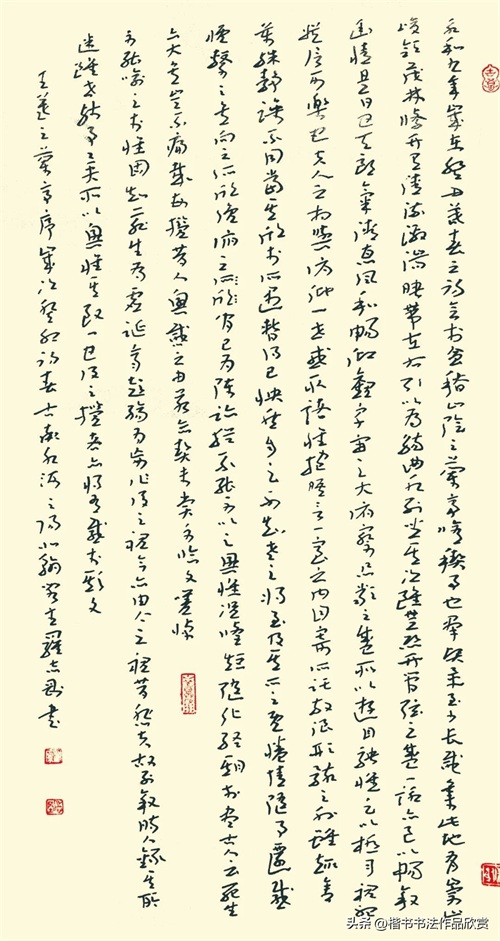 永和九年歲在癸丑暮春之初會於會稽山陰之蘭亭脩禊事也羣賢畢至少長咸集此地有崇山
峻領茂林脩竹又有清流激湍暎帶左右引以為流觴曲水列坐其次雖無絲竹管弦之盛一觴一詠亦足以暢敘
幽情是日也天朗氣清惠風和暢仰觀宇宙之大俯察品類之盛所以遊目騁懷足以極視聽之
娛信可樂也夫人之相與俯仰一世或取諸懷抱悟言一室之內因寄所託放浪形骸之外雖趣舍
萬殊靜躁不同當其欣於所遇暫得於己快然自足不知老之將至及其所之既倦情隨事遷感
慨係之矣向之所欣俛仰之間已為陳跡猶不能不以之興懷況脩短隨化終期於盡古人云死生
亦大矣豈不痛哉每攬昔人興感之由若合一契未嘗不臨文嗟悼
不能喻之於懷固知一死生為虛誕齊彭殤為妄作後之視今亦由今之視昔悲夫故列敘時人錄其所
述雖世殊事異所以興懷其致一也後之攬者亦將有感於斯文
王羲之蘭亭序歲次癸卯初春
頭条 @楷书书法作品欣赏